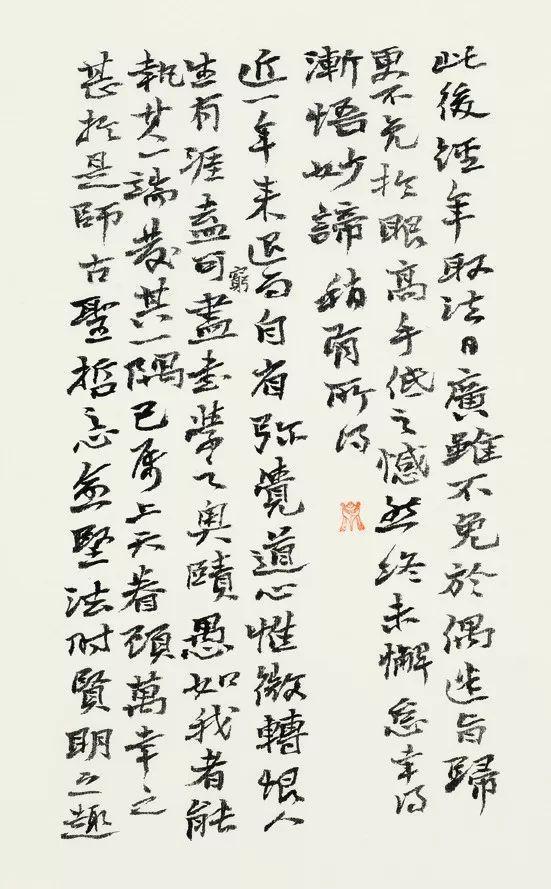 此後經年取法日廣雖不免於偶迷旨歸
更不免於眼高手低之憾然終未懈怠幸得
漸悟妙諦稍有所得
近一年来退而自省弥覺道心惟微轉恨人
生有涯盍可窮盡書藝之奧賾愚如我者能
執其一端發其一隅已屬上天眷顧萬幸之
甚於是師古聖哲之志愈堅法时賢明之趣